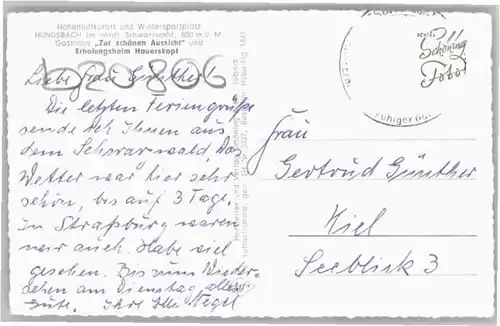 Höhenluftkurort und Wintersportplatz
HUNDSBACH im nördl. Schwarzwald, 800 m ü. M.
Gasthaus „Zur schönen Aussicht" und
Erholungsheim Hauerskopf
Liebe Frau Günther!
Die letzten Feriengrüße
sende ich Ihnen aus
dem Schwarzwald. Das
Wetter war hier sehr
schön, bis auf 3 Tage,
in Straßburg waren
wir auch. Habe viel
gesehen. Bis zum Wieder-
sehen am Dienstag, alles
Gute. Ihre Nagel
020806
Schöning
Foto
ruhiger
Frau
Gertrud Günther
Kiel
Seeblick 3